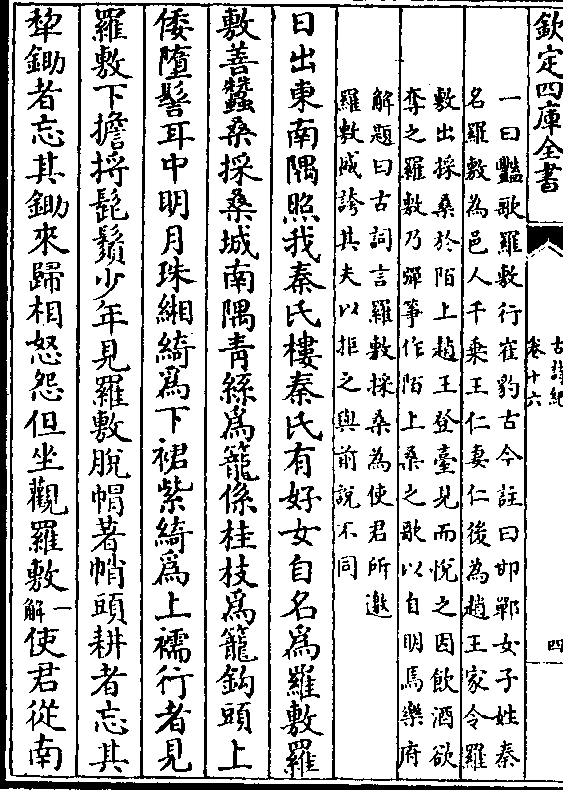 欽定四庫全書
古詩紀
卷十六
四
一曰豔歌羅敷行崔豹古今註曰邯鄲女子姓秦
名羅敷為邑人千乗王仁妻仁後為趙王家令羅
敷出採桑於陌上趙王登臺見而悅之因飲酒欲
奪之羅敷乃彈筝作陌上桑之歌以自明焉樂府
解題曰古詞言羅敷採桑為使君所邀
羅敷盛誇其夫以拒之與前說不同
日出東南隅照我秦氏樓秦氏有好女自名爲羅敷羅
敷善蠶桑採桑城南隅青絲爲籠係桂枝爲籠鈎頭上
倭墮髻耳中明月珠緗綺爲下裙紫綺爲上襦行者見
羅敷下擔捋髭鬚少年見羅敷脫帽著帩頭耕者忘其
犂鋤者忘其鋤來歸相怒怨但坐觀羅敷一解使君從南